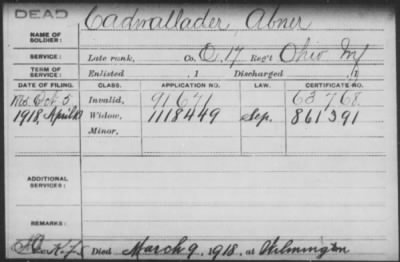 DEAD Cadwallader, Abner
NAME OF SOLDIER:
SERVICE: Late rank, Co. D. 17 Reg't Ohio Inf
TERM OF SERVICE: Enlisted , 1 Discharged , 1
DATE OF FILING. CLASS. APPLICATION NO. LAW. CERTIFICATE NO.
Oct. 5 Invalid, 91671 63768
1918, April Widow, 1118449 Sep. 861391
Minor,
ADDITIONAL SERVICES:
REMARKS:
Died March 9, 1918, at Wilmington